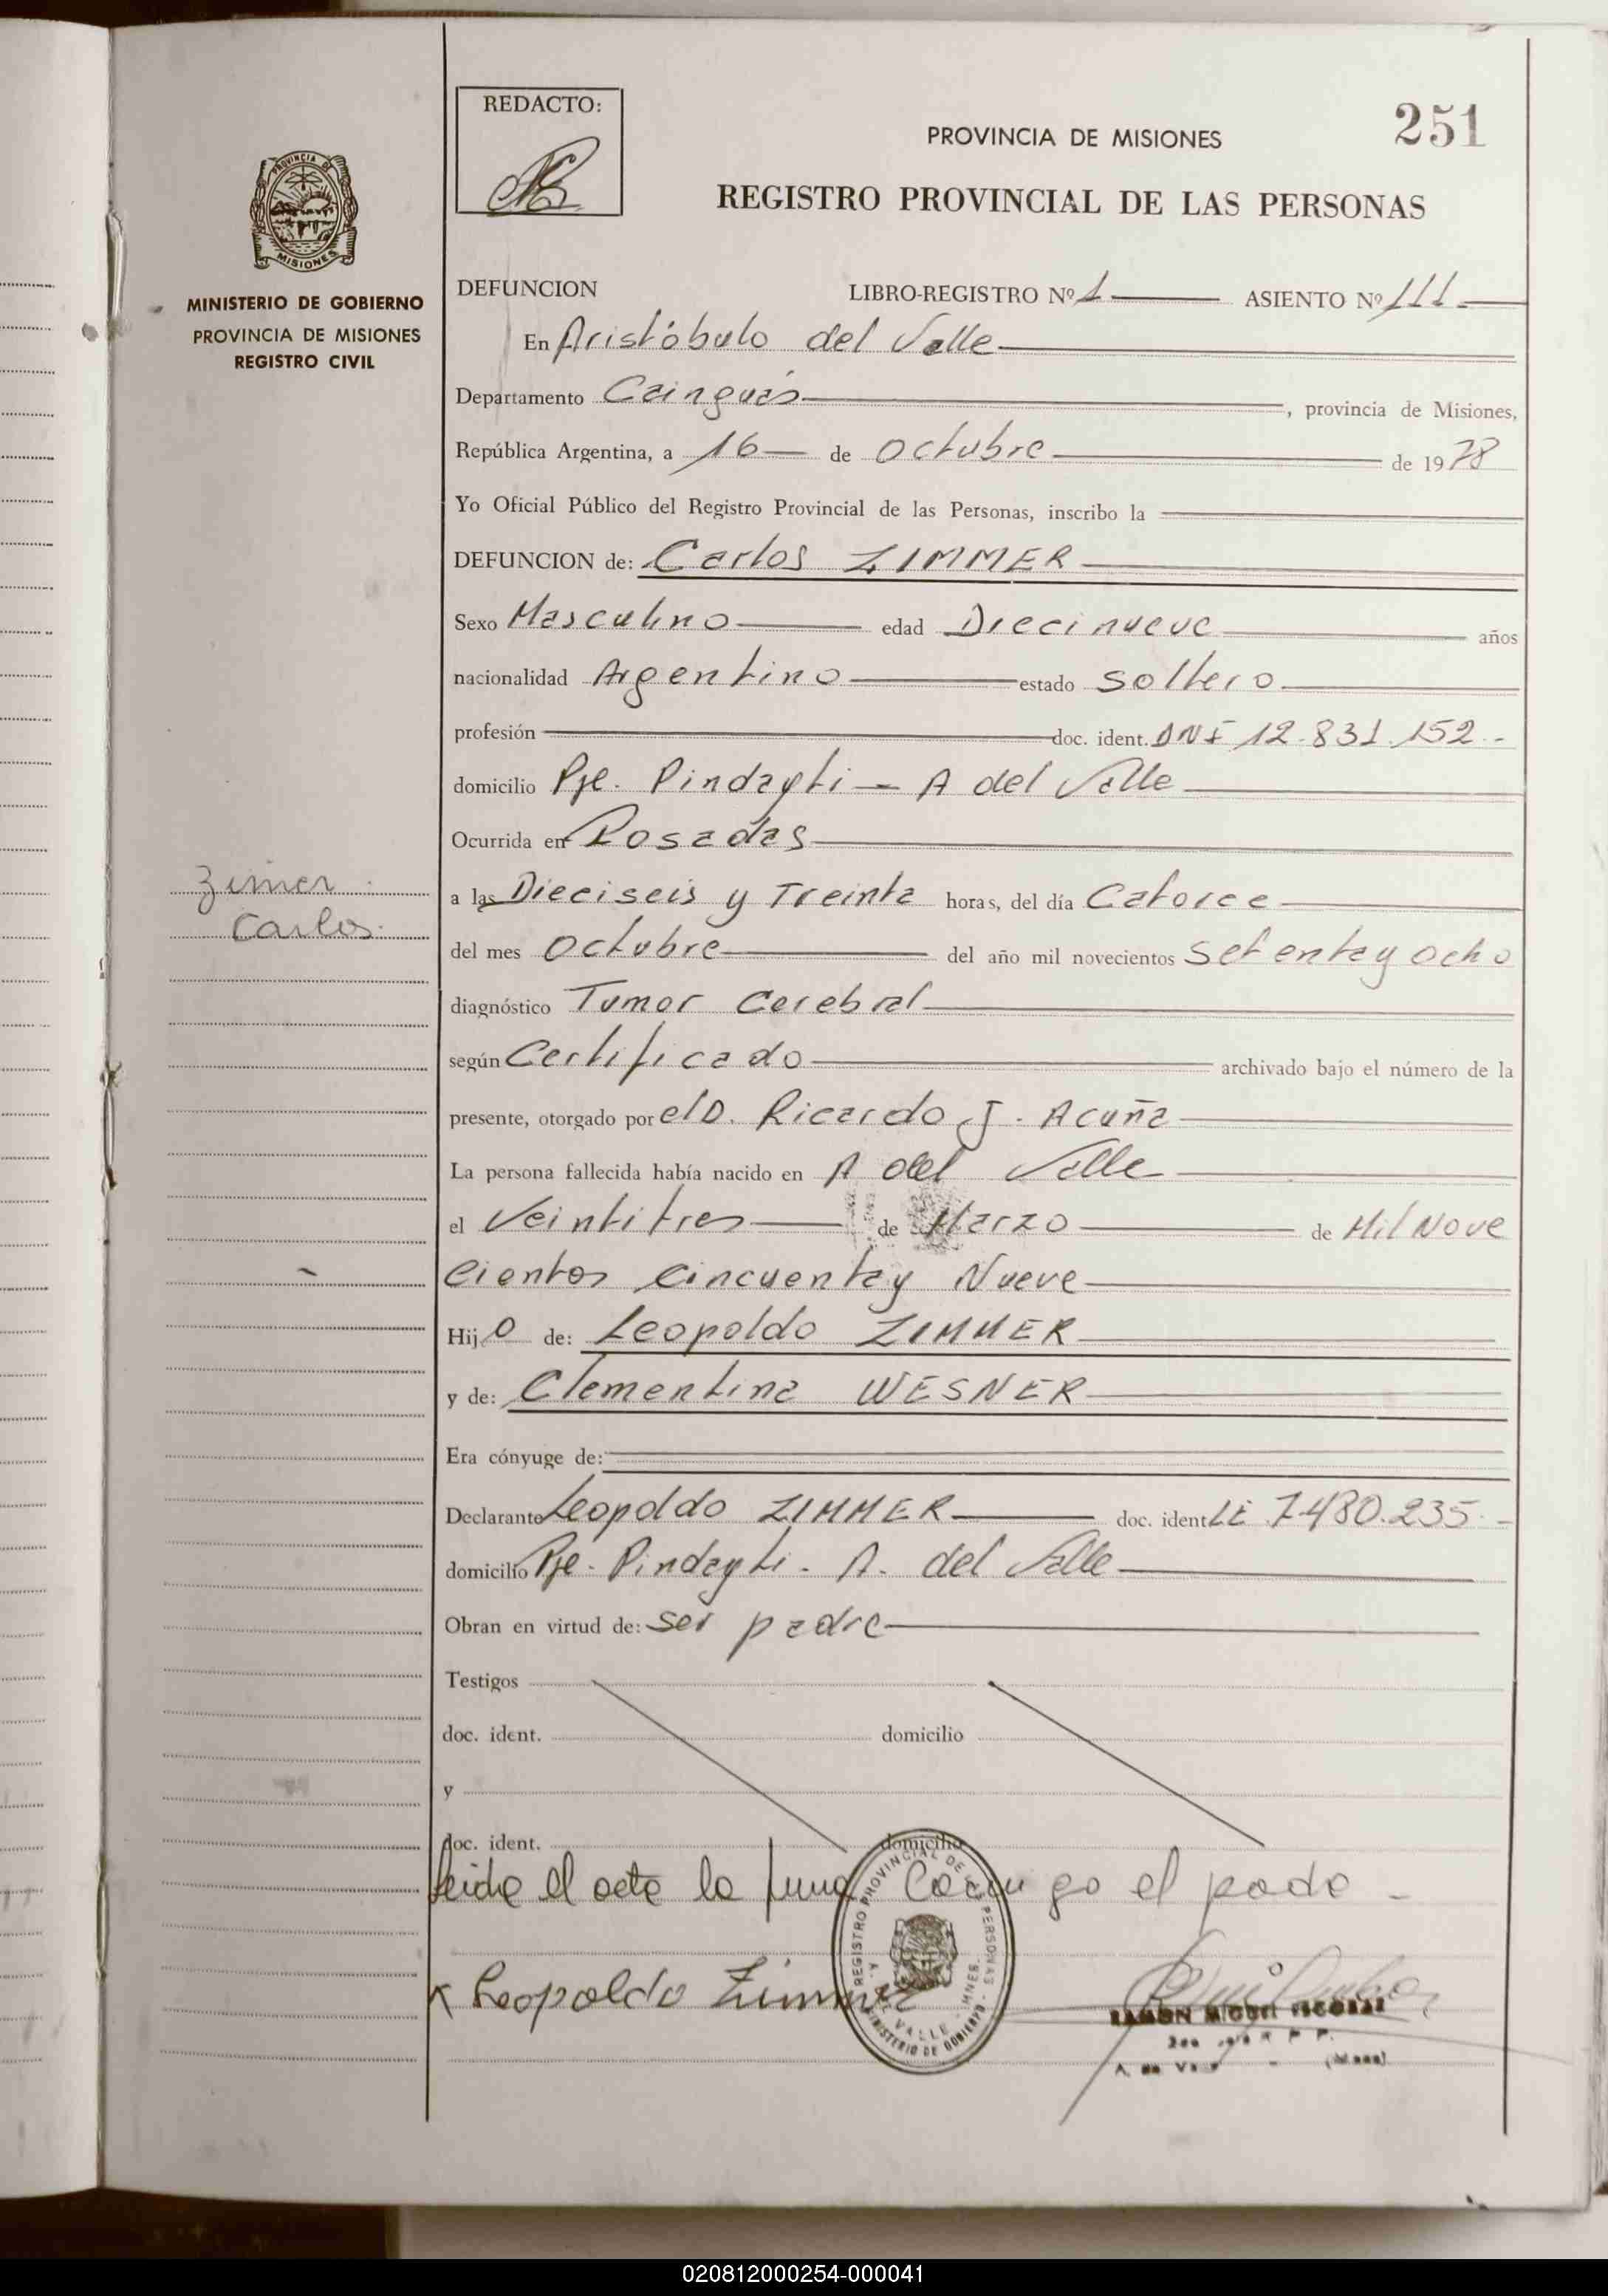 REDACTO:
251
PROVINCIA DE MISIONES
REGISTRO PROVINCIAL DE LAS PERSONAS
PROVINCIA DE
MISIONES
MINISTERIO DE GOBIERNO
PROVINCIA DE MISIONES
REGISTRO CIVIL
DEFUNCION LIBRO-REGISTRO Nº 1 ASIENTO Nº 111
En Aristóbulo del Valle
Departamento Cainguás, provincia de Misiones,
República Argentina, a 16 de Octubre de 1978
Yo Oficial Público del Registro Provincial de las Personas, inscribo la
DEFUNCION de: Carlos ZIMMER
Sexo Masculino edad Diecinueve años
nacionalidad Argentino estado Soltero
profesión doc. ident. DNI 12.831.152.-
domicilio Pje. Pindayti - A del Valle
Ocurrida en Posadas
Zimer
Carlos
a las Dieciseis y Treinta horas, del día Catorce
del mes Octubre del año mil novecientos Setentay ocho
diagnóstico Tumor Cerebral
según Certificado archivado bajo el número de la
presente, otorgado por el D. Ricardo J. Acuña
La persona fallecida había nacido en A del Valle
el Veintitres de Marzo de Mil Nove
cientos cincuentay Nueve
Hijo de: Leopoldo ZIMMER
y de: Clementina WESNER
Era cónyuge de:
Declarante Leopoldo ZIMMER doc. ident LE 7.480.235.-
domicilio Pje. Pindayti. A. del Valle
Obran en virtud de: ser padre
Testigos
doc. ident. domicilio
y
doc. ident. domicilio
leida el acta la firma el padre -
REGISTRO PROVINCIAL DE LAS PERSONAS
A. DEL VALLE - MNES.
MINISTERIO DE GOBIERNO
Leopoldo Zimmer
RAMON MIGUEL
A. del Valle (Mnes)
020812000254-000041